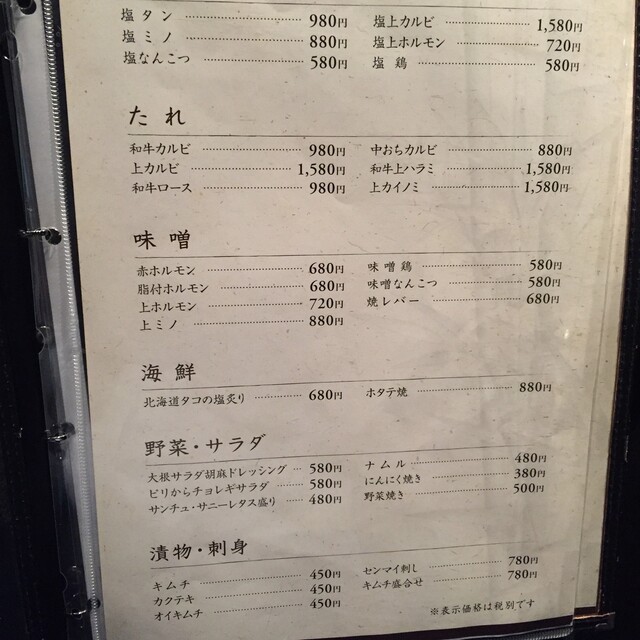 塩タン 980円 塩上カルビ 1,580円
塩ミノ 880円 塩上ホルモン 720円
塩なんこつ 580円 塩鶏 580円
たれ
和牛カルビ 980円 中おちカルビ 880円
上カルビ 1,580円 和牛上ハラミ 1,580円
和牛ロース 980円 上カイノミ 1,580円
味噌
赤ホルモン 680円 味噌鶏 580円
脂付ホルモン 680円 味噌なんこつ 580円
上ホルモン 720円 焼レバー 680円
上ミノ 880円
海鮮
北海道タコの塩炙り 680円 ホタテ焼 880円
野菜・サラダ
大根サラダ胡麻ドレッシング 580円 ナムル 480円
ピリからチョレギサラダ 580円 にんにく焼き 380円
サンチュ・サニーレタス盛り 480円 野菜焼き 500円
漬物・刺身
キムチ 450円 センマイ刺し 780円
カクテキ 450円 キムチ盛合せ 780円
オイキムチ 450円
※表示価格は税別です